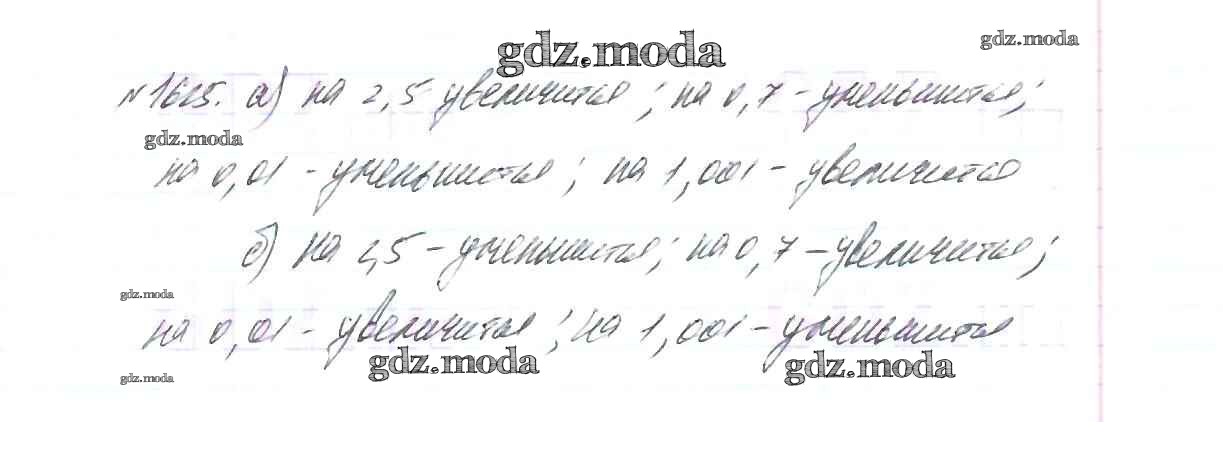 gdz.moda
gdz.moda
№1625. а) на 2,5 увеличится; на 0,7 - уменьшится;
gdz.moda
на 0,01 - уменьшится; на 1,001 - увеличится
б) на 2,5 - уменьшится; на 0,7 - увеличится;
gdz.moda
на 0,01 - увеличится; на 1,001 - уменьшится
gdz.moda
gdz.moda
gdz.moda